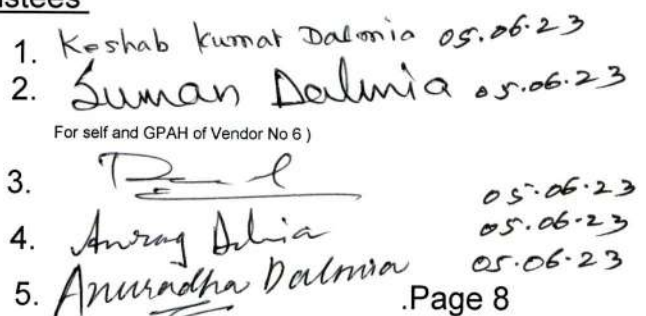 1. Keshab Kumar Dalmia 05.06.23
2. Suman Dalmia 05.06.23
For self and GPAH of Vendor No 6 )
3. 05.06.23
4. Anurag 05.06.23
5. Anuradha Dalmia 05.06.23
.Page 8